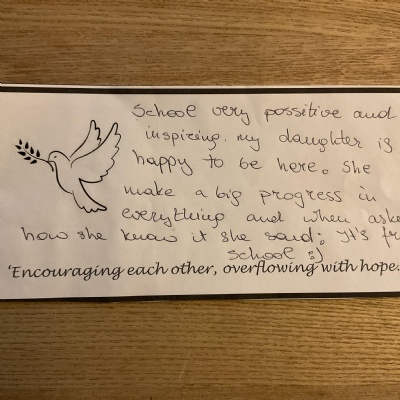 School very possitive and
inspireing. my daughter is
happy to be here. She
make a big progress in
everything and when aske
how she know it she said: It's fr
school :)
'Encouraging each other, overflowing with hope.